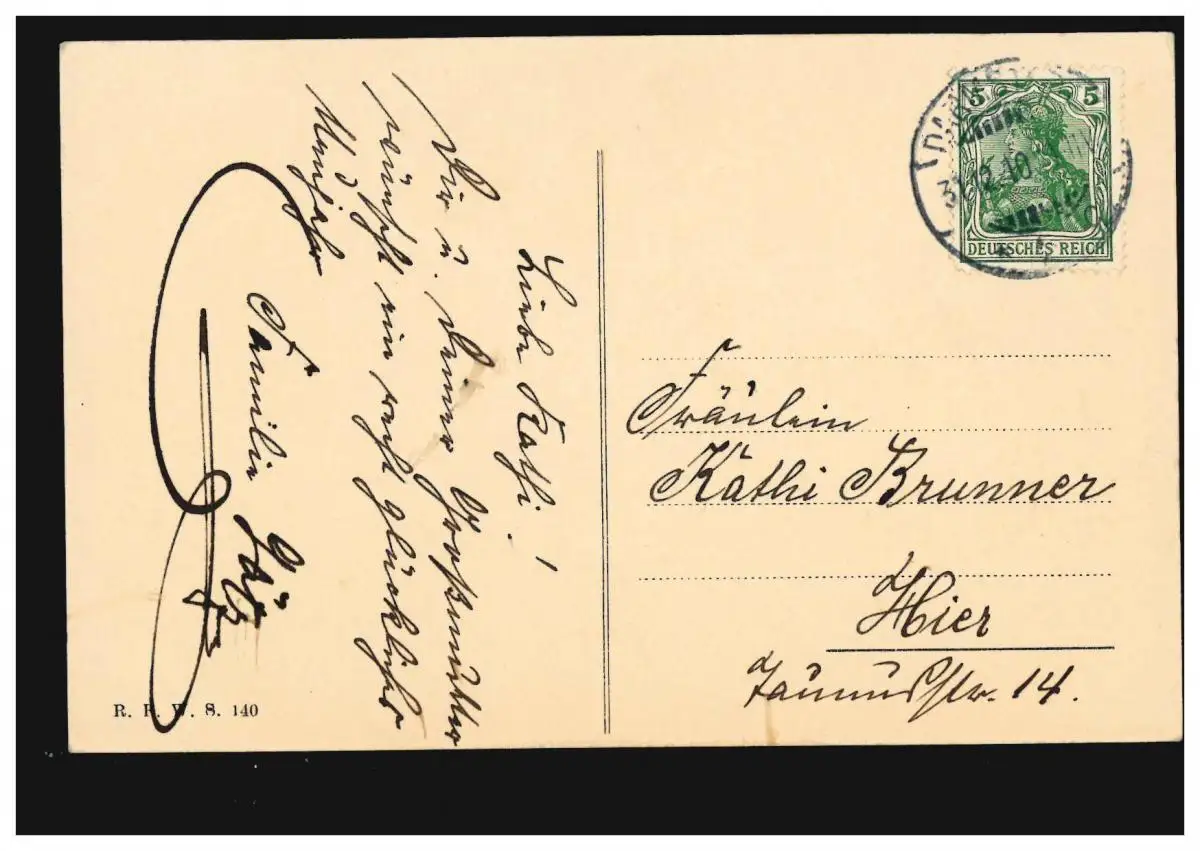 Liebe Kathi!
Dir u. Deiner Großmutter
wünscht ein recht glückliches
Neujahr
Familie
5 5
DEUTSCHES REICH
31.12.10
Fräulein
Käthi Brunner
Hier
Taunusstr. 14.
R. F. W. S. 140